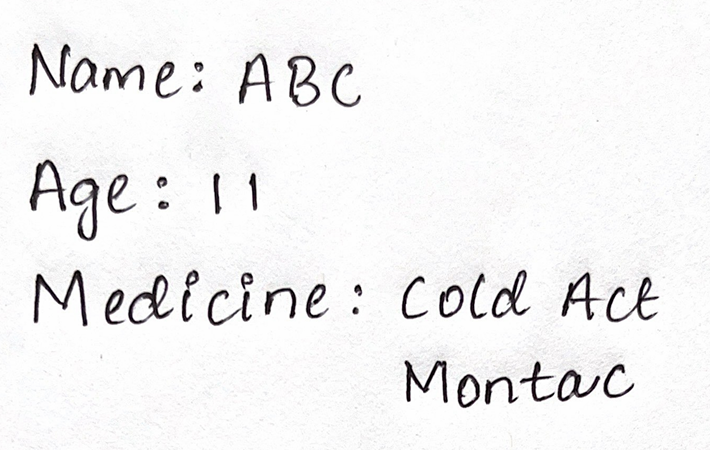 Name: ABC
Age: 11
Medicine: Cold Act
Montac